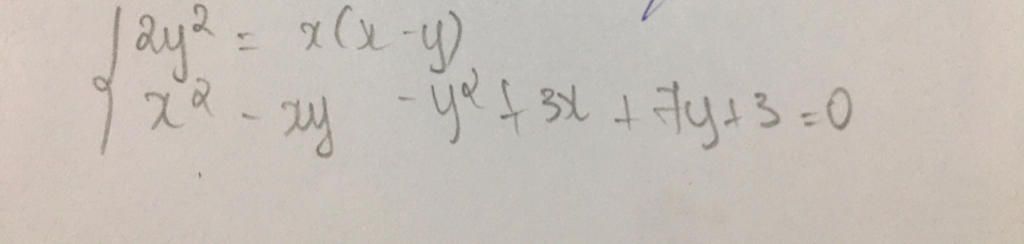 2y² = x(x-y)
x² - xy - y² + 3x + 7y + 3 = 0